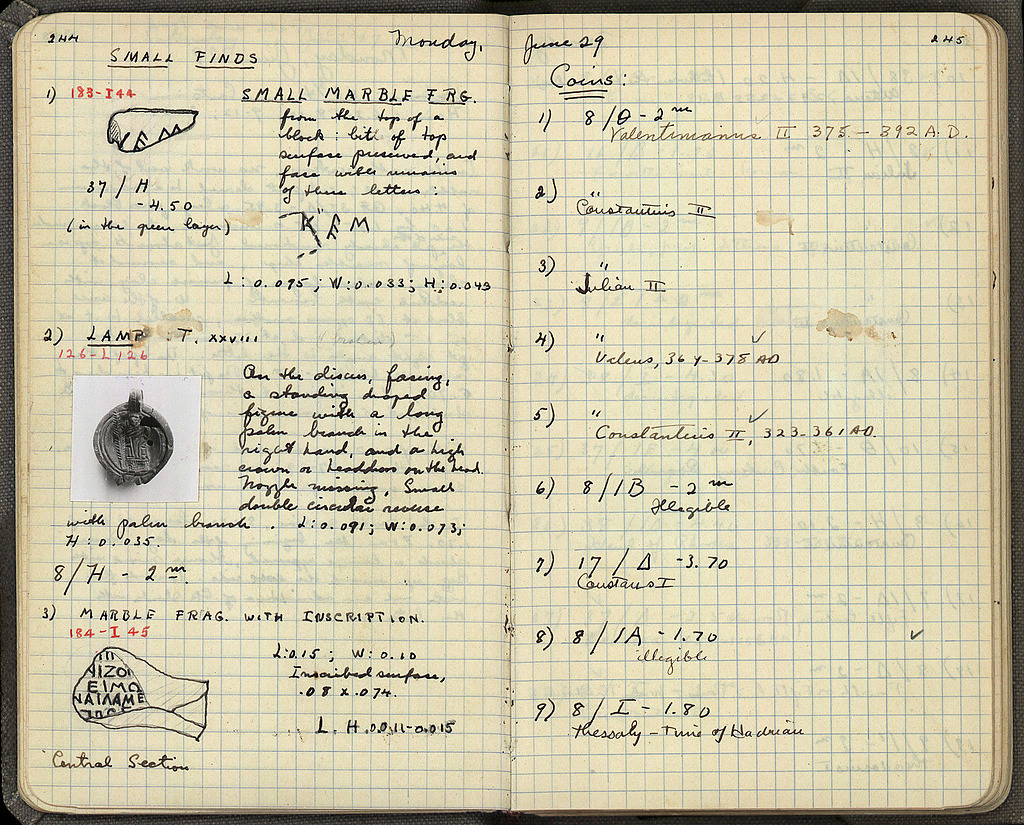 244
Monday,
SMALL FINDS
1) 183-I 44
SMALL MARBLE FRG.
from the top of a
block: bit of top
surface preserved, and
face with remains
of three letters:
37 / H
-4.50
(in the green layer)
K E M
L: 0.095; W: 0.033; H: 0.049
2) LAMP T. XXVIII (broken)
126-L 126
On the discus, facing,
a standing draped
figure with a long
palm branch in the
right hand, and a high
crown or headdress on the head.
Nozzle missing, Small
double circular reverse
with palm branch. L: 0.091; W: 0.073;
H: 0.035.
8/H - 2 m.
3) MARBLE FRAG. WITH INSCRIPTION.
184-I 45
L: 0.15; W: 0.10
Inscribed surface,
.08 x .074.
L. H. 0.011-0.015
ΙΙΖΟΙ
ΕΙΜΩ
ΝΑΙΛΑΜΕ
Central Section
June 29
245
Coins:
1) 8/Θ - 2 m
Valentinianus II 375 - 392 A.D.
2) "
Constantius II
3) "
Julian II
4) " ✓
Valens, 364-378 AD
5) " ✓
Constantius II, 323-361 AD.
6) 8/IB - 2 m
Illegible
7) 17/Δ -3.70
Constans I
8) 8/IA -1.70 ✓
illegible
9) 8/I - 1.80
Thessaly - Time of Hadrian